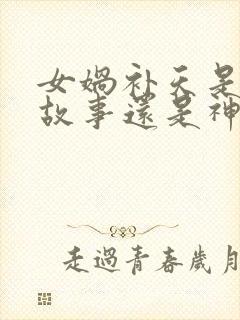 女媧补天是
故事還是神
走過青春歲月